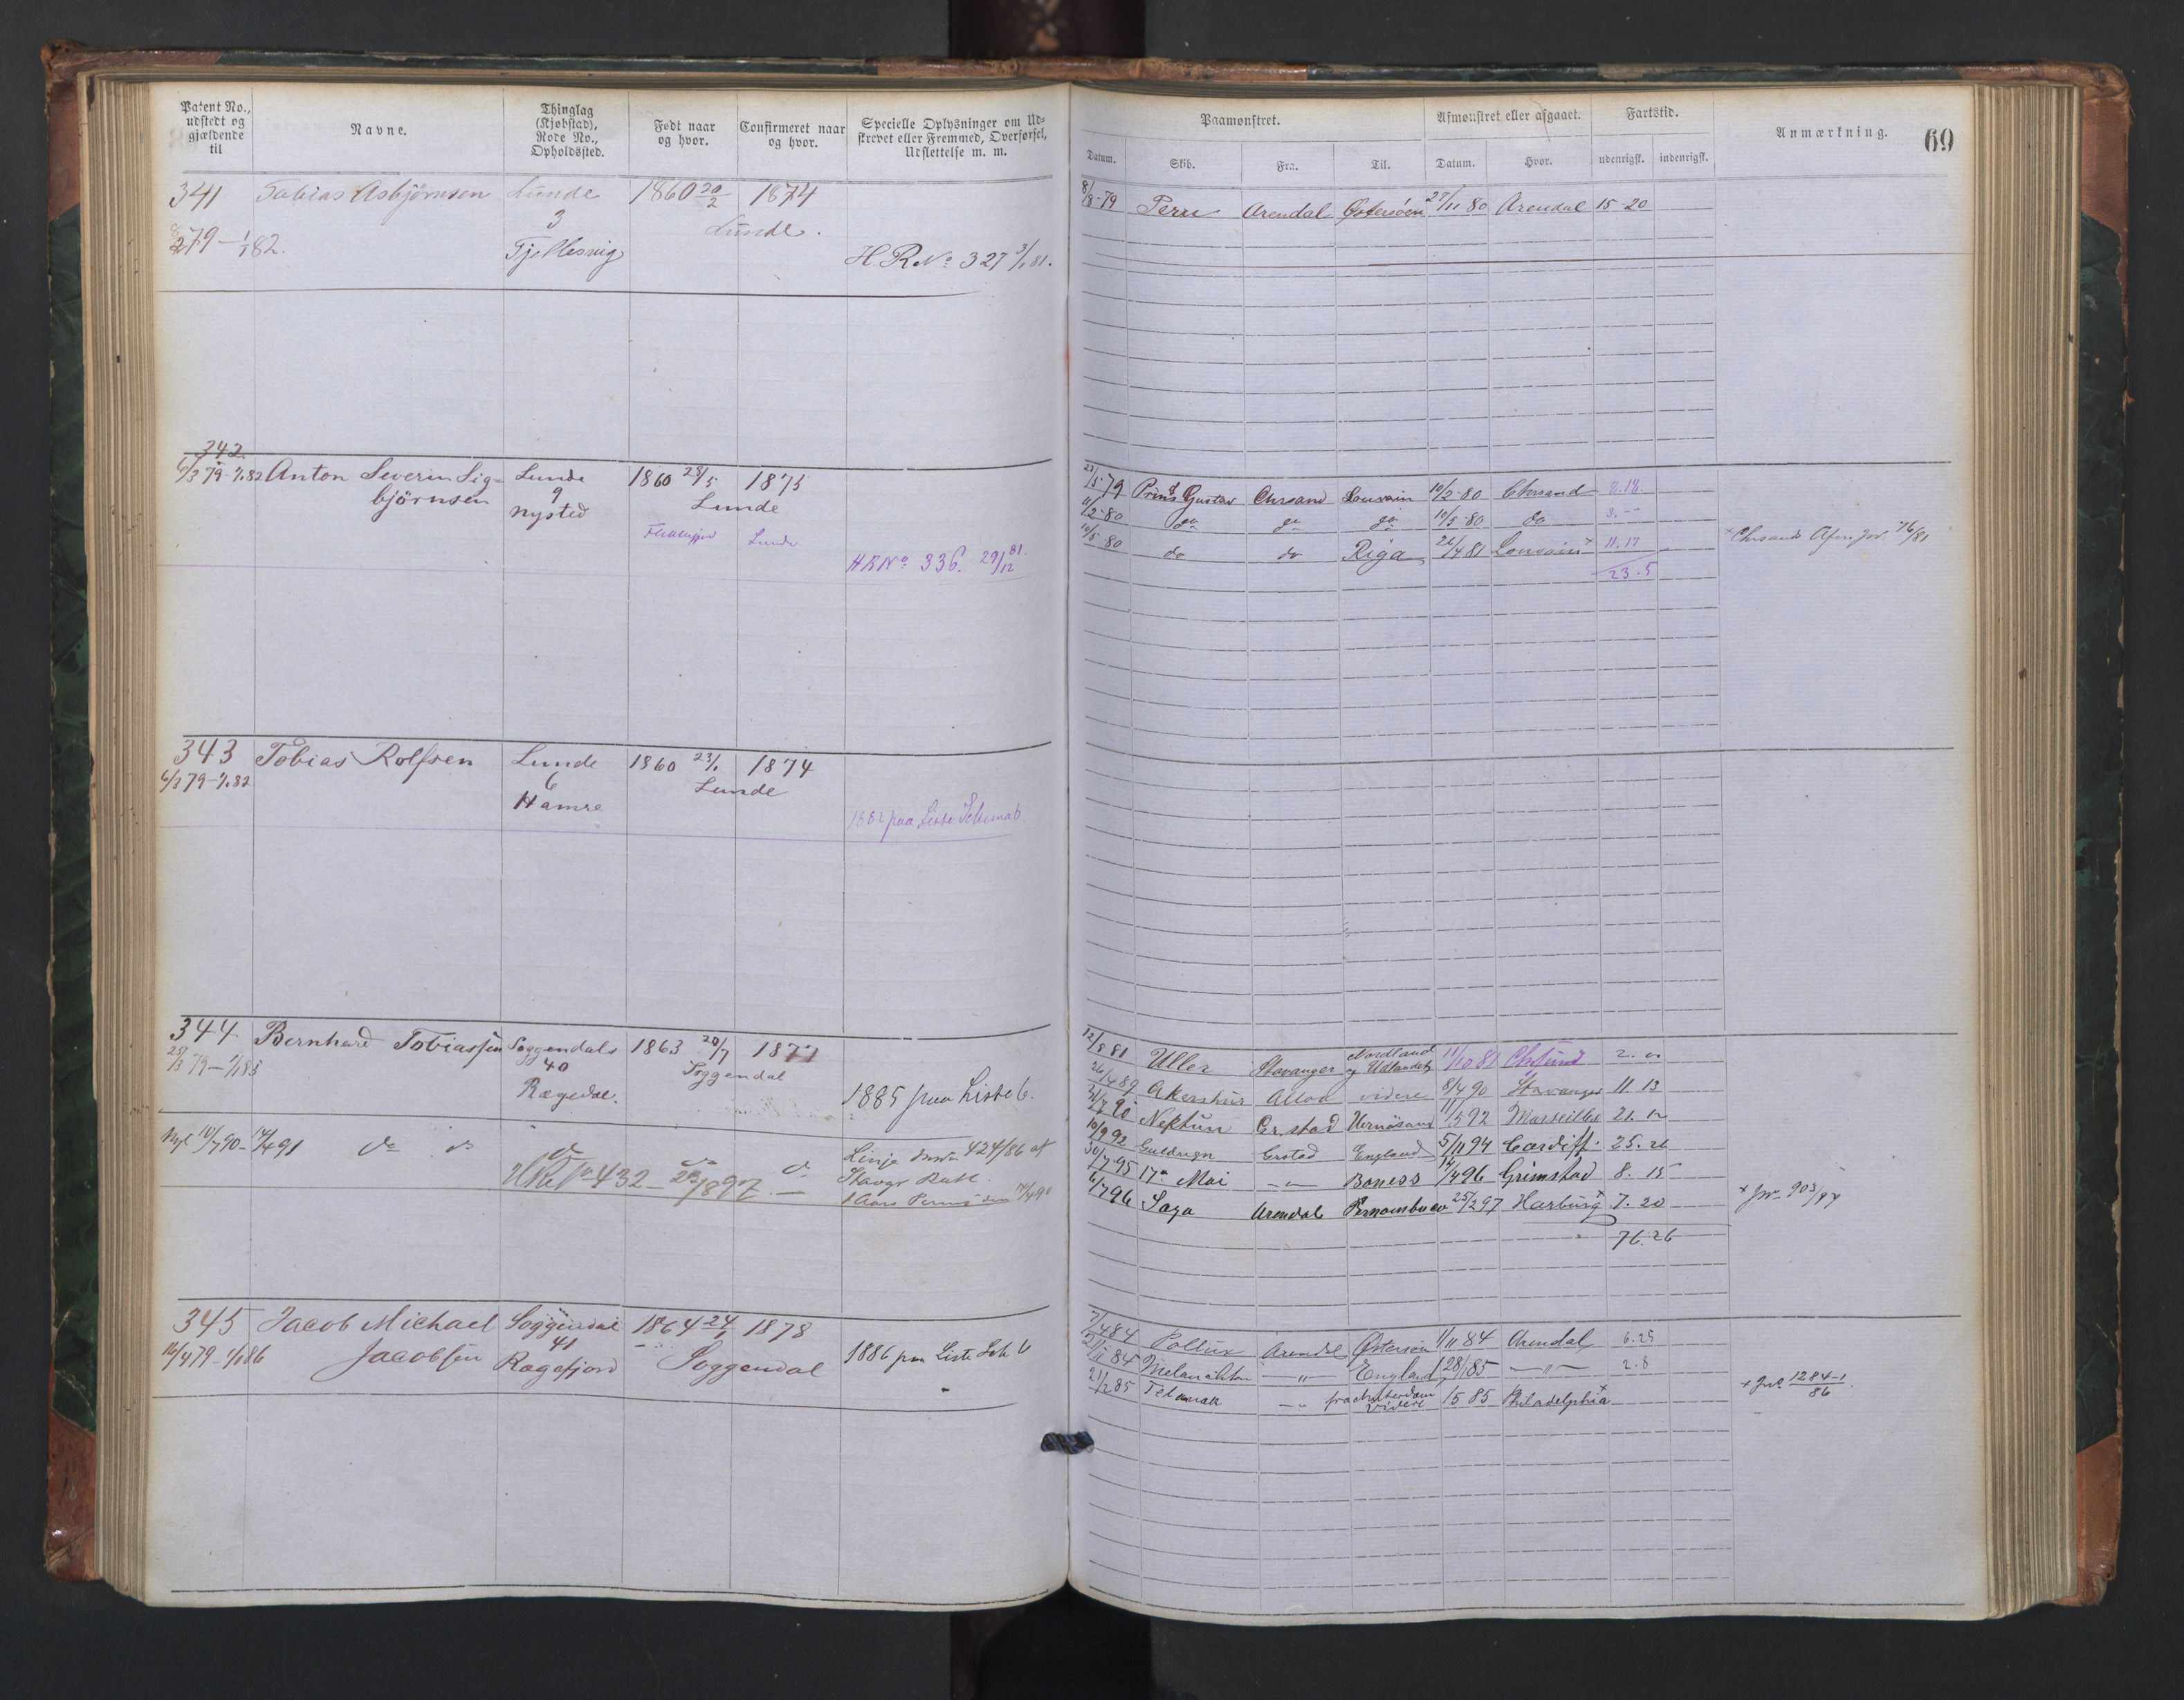 Patent No., udstedt og gjældende til
Navne.
Thinglag (Kjøbstad), Rode No., Opholdssted.
Født naar og hvor.
Confirmeret naar og hvor.
Specielle Oplysninger om Udskrevet eller Fremmed, Overførsel, Udslettelse m. m.
Paamønstret.
Afmønstret eller afgaaet.
Fartstid.
Anmærkning.
69
Datum. Skib. Fra. Til. Datum. Hvor. udenrigsk. indenrigsk.
341 Tobias Asbjørnsen Lunde 1860 20/2 1874
3 Lunde.
79 - 1/1 82. Fjellesvig
H. R No 327 3/1 81.
8/8-79 Peru Arendal Østersøen 27/11 80 Arendal 15-20
342
6/3 79-1/1 82 Anton Severin Sig- Lunde 1860 28/5 1875
björnsen 9 Lunde
Nysted
Lunde
HRNo 336. 29/12 81.
23/5 79 Prins Gustav Chrsand Louvain 10/2-80 Chrsand 8.18.
11/2-80 do do do 10/5-80 do 3.--
10/5 80 do do Riga 26/4 81 Louvain x 11.17
23.5
x Chrsands Afm jor. 76/81
343 Tobias Rolfsen Lunde 1860 23/1 1874
6/3 79-1/1 82 6 Lunde
Hamre
1882 paa Liste Schema 6.
344 Bernhard Tobiassen Soggendals 1863 20/7 1877
28/3 79-1/1 85 40 Soggendal
Rægedal.
1885 paa Liste 6.
Nyt 10/7 90- 14/4 91 do do do do d.
Linje 424/86 af
HRNo 432 - 23/8 97 -
Stavgr
1 Aars 14/4 90
12/8 81 Uller Stavanger Nordland og Udlandet 11/10 81 Chrsund 2.
26/4 89 Akershus Alloa videre 8/4 90 Stavanger 11. 13
21/7 90 Neptun Gr.stad Hernösand 11/5 92 Marseille 21. 12
10/9 92 Guldregn Grstad England 5/11 94 Cardiff. 25. 26
30/7-95 17de Mai -"- Boness 14/4 96 Grimstad 8. 15
6/7 96 Saga Arendal Pernambuco 25/2 97 Harburg x 7. 20
76.26
x Jno 903/97
345 Jacob Michael Soggendal 1864 24/1 1878
16/4 79-1/1 86 Jacobsen 41 Soggendal
Rægefjord
1886 paa Liste Sch 6
7/4 84 Pollux Arendal Østersøn 1/11 84 Arendal 6.25
12/11 84 Melanchton -"- England 28/1 85 -"- 2.8
21/2 85 Telemak -"- fra Amsterdam videre 1/5 85 Philadelphia x
x Jno 1284-1/86.